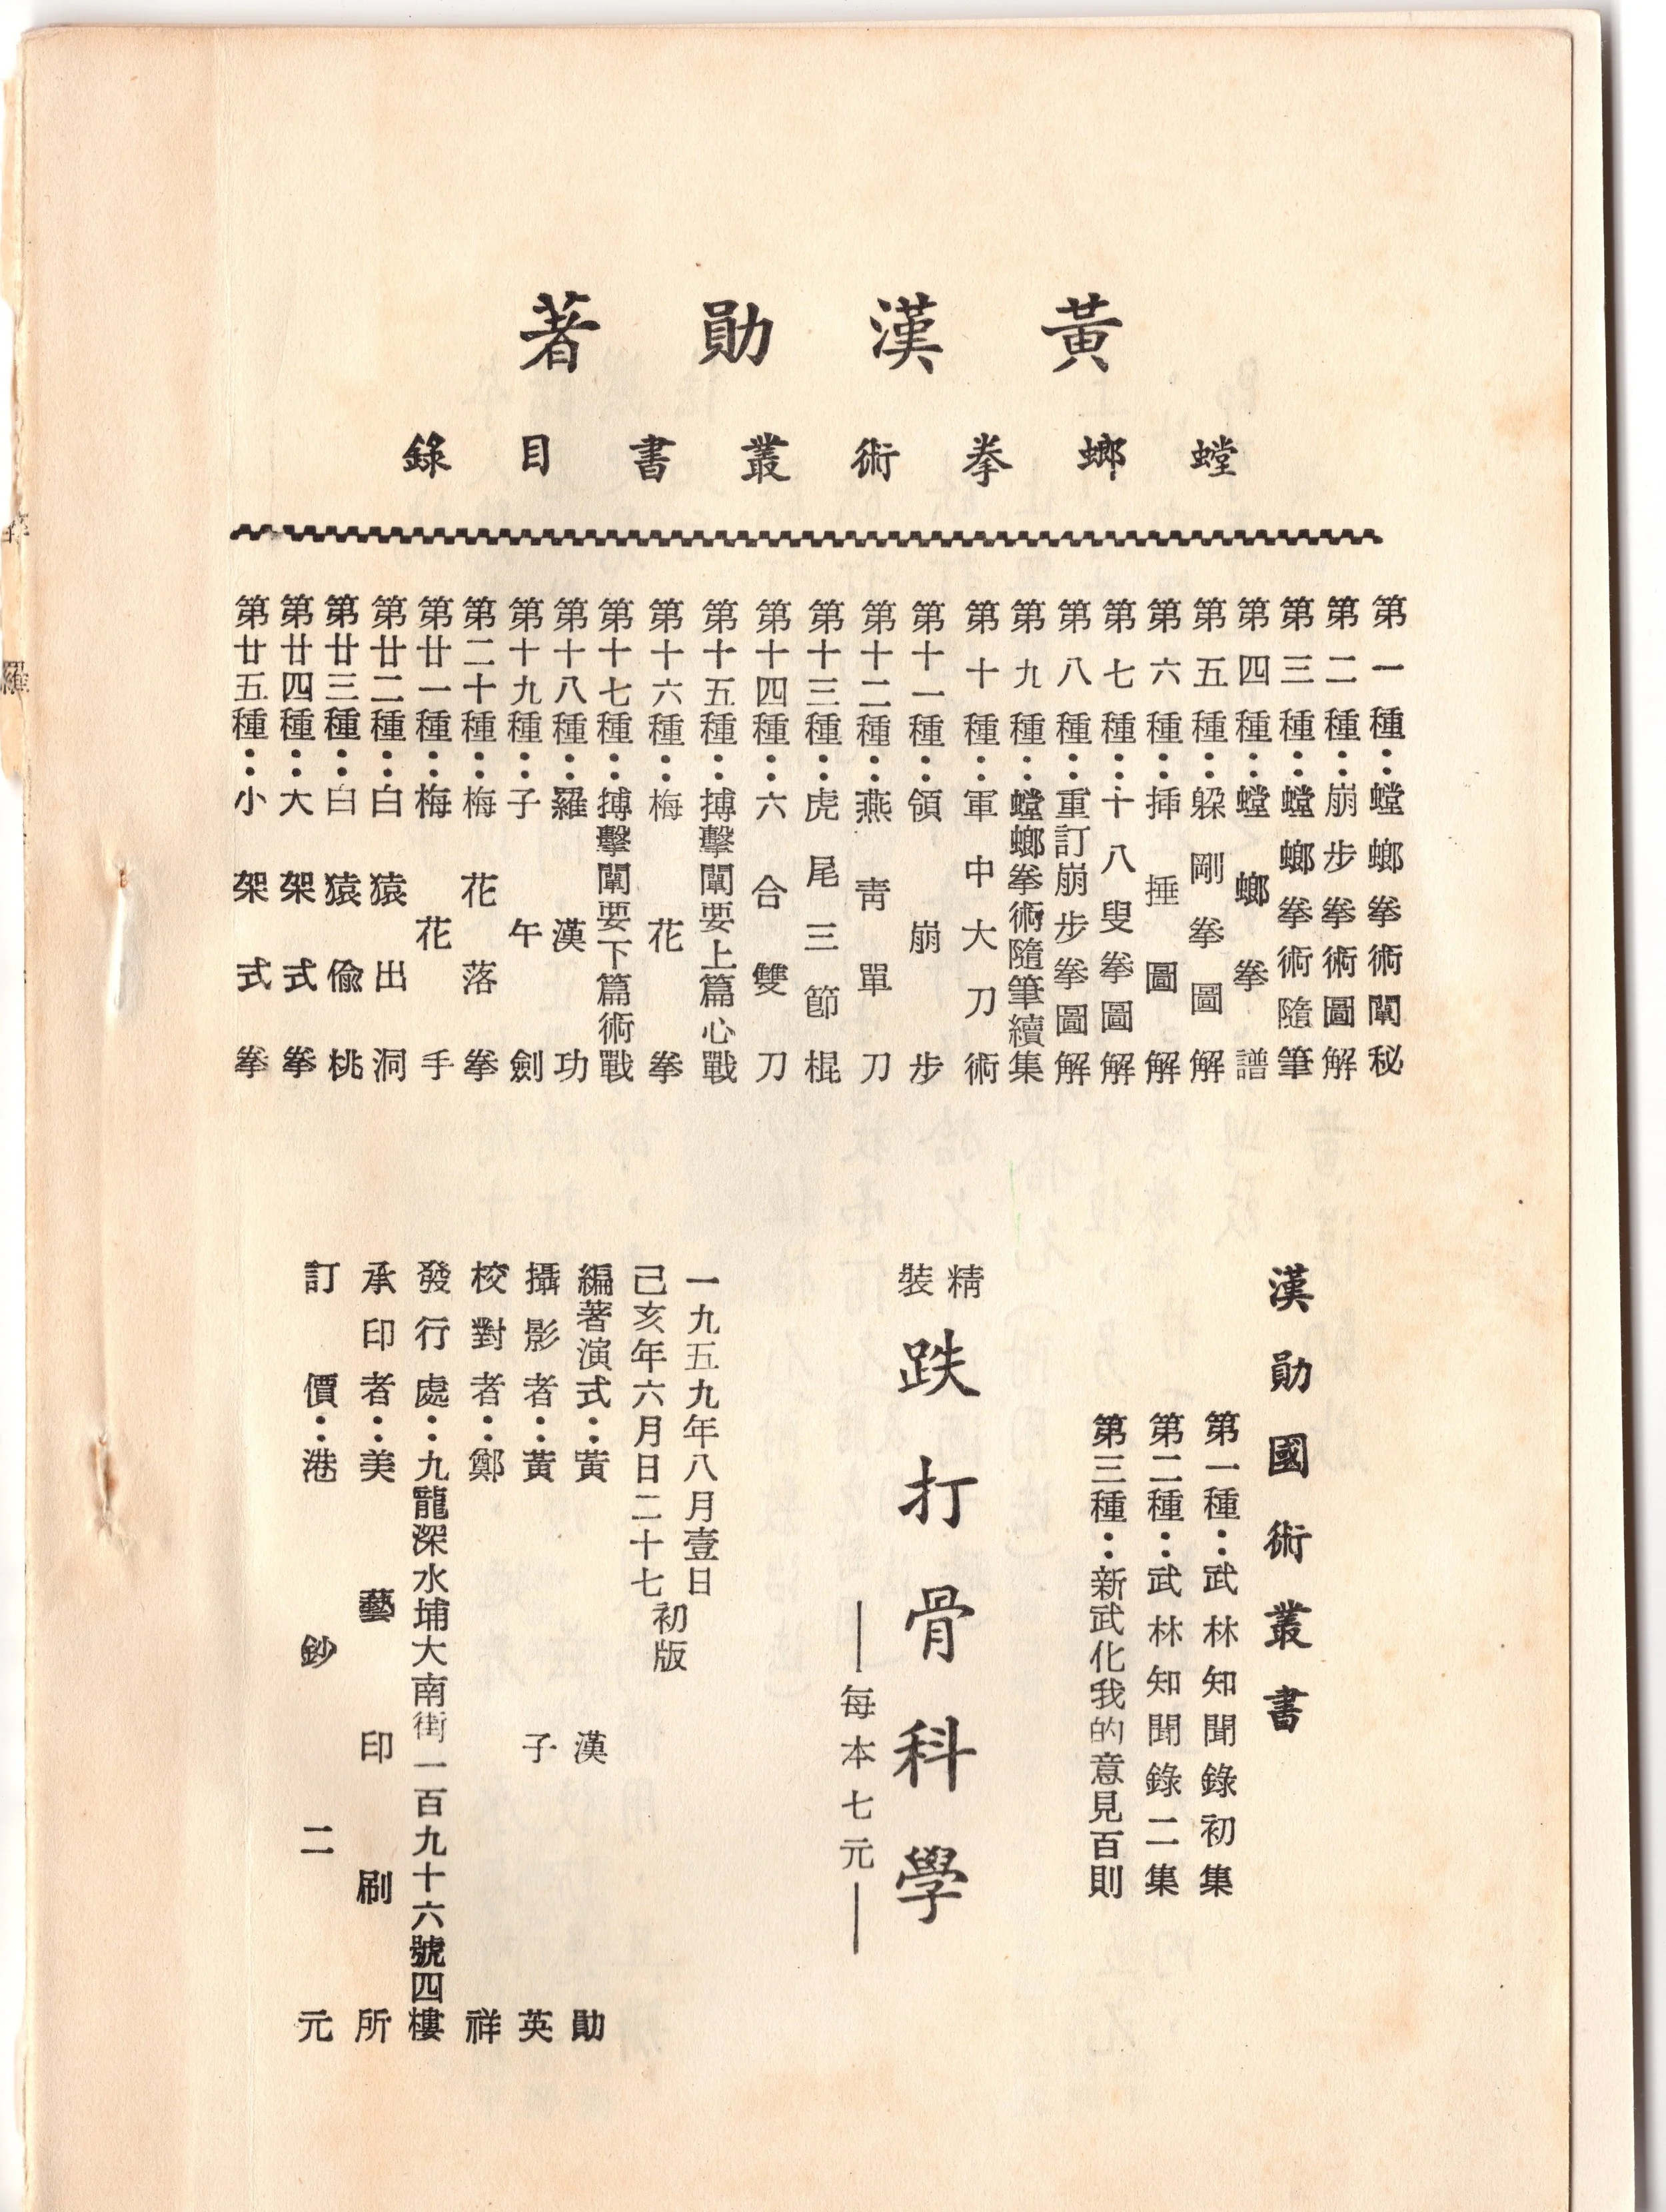 黃漢勛著
螳螂拳術叢書目錄
第一種：螳螂拳術闡秘
第二種：崩步拳術圖解
第三種：螳螂拳術隨筆
第四種：螳螂拳譜
第五種：躱剛拳圖解
第六種：挿捶圖解
第七種：十八叟拳圖解
第八種：重訂崩步拳圖解
第九種：螳螂拳術隨筆續集
第十種：軍中大刀術
第十一種：領崩步
第十二種：燕靑單刀
第十三種：虎尾三節棍
第十四種：六合雙刀
第十五種：搏擊闡要上篇心戰
第十六種：梅花拳
第十七種：搏擊闡要下篇術戰
第十八種：羅漢功
第十九種：子午劍
第二十種：梅花落拳
第廿一種：梅花手
第廿二種：白猿出洞
第廿三種：白猿偸桃
第廿四種：大架式拳
第廿五種：小架式拳
漢勛國術叢書
第一種：武林知聞錄初集
第二種：武林知聞錄二集
第三種：新武化我的意見百則
精裝
跌打骨科學
—每本七元—
一九五九年八月壹日
己亥年六月日二十七
初版
編著演式：黃漢勛
攝影者：黃子英
校對者：鄭祥
發行處：九龍深水埔大南街一百九十六號四樓
承印者：美藝印刷所
訂價：港鈔二元
羅